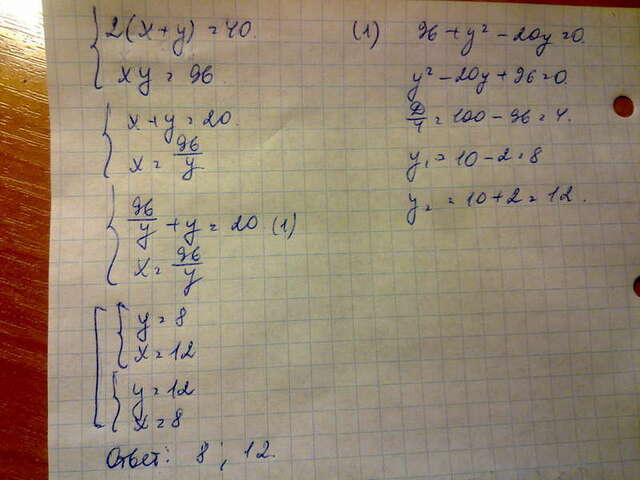 2(x+y) = 40.
xy = 96.
x+y = 20.
x = 96/y
96/y + y = 20 (1)
x = 96/y
y = 8
x = 12
y = 12
x = 8
Ответ: 8 ; 12.
(1) 96 + y² - 20y = 0.
y² - 20y + 96 = 0.
D/4 = 100 - 96 = 4.
y₁ = 10 - 2 = 8
y₂ = 10 + 2 = 12.